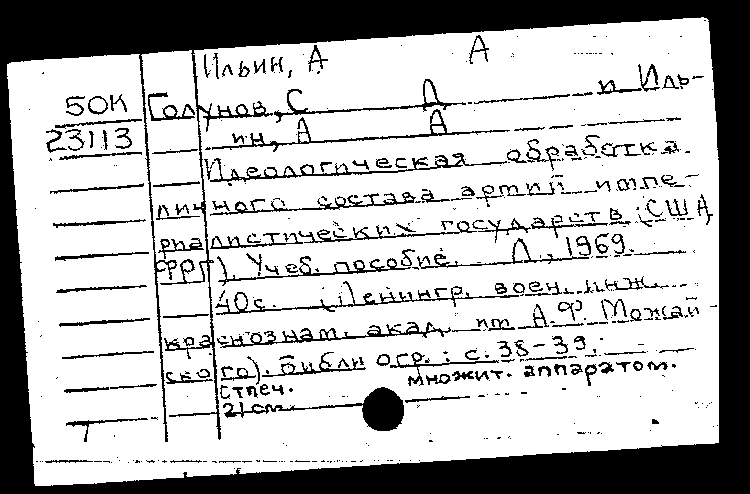 Ильин, А А
50К Голунов, С Д и Иль-
23113 ин, А А
Идеологическая обработка
личного состава армий импе-
риалистических государств (США,
ФРГ). Учеб. пособие. Л., 1969.
40с. (Ленингр. воен. инж.
краснознам. акад. им А.Ф. Можай-
ского). Библиогр.: с. 38-39.
Отпеч. множит. аппаратом.
21см.